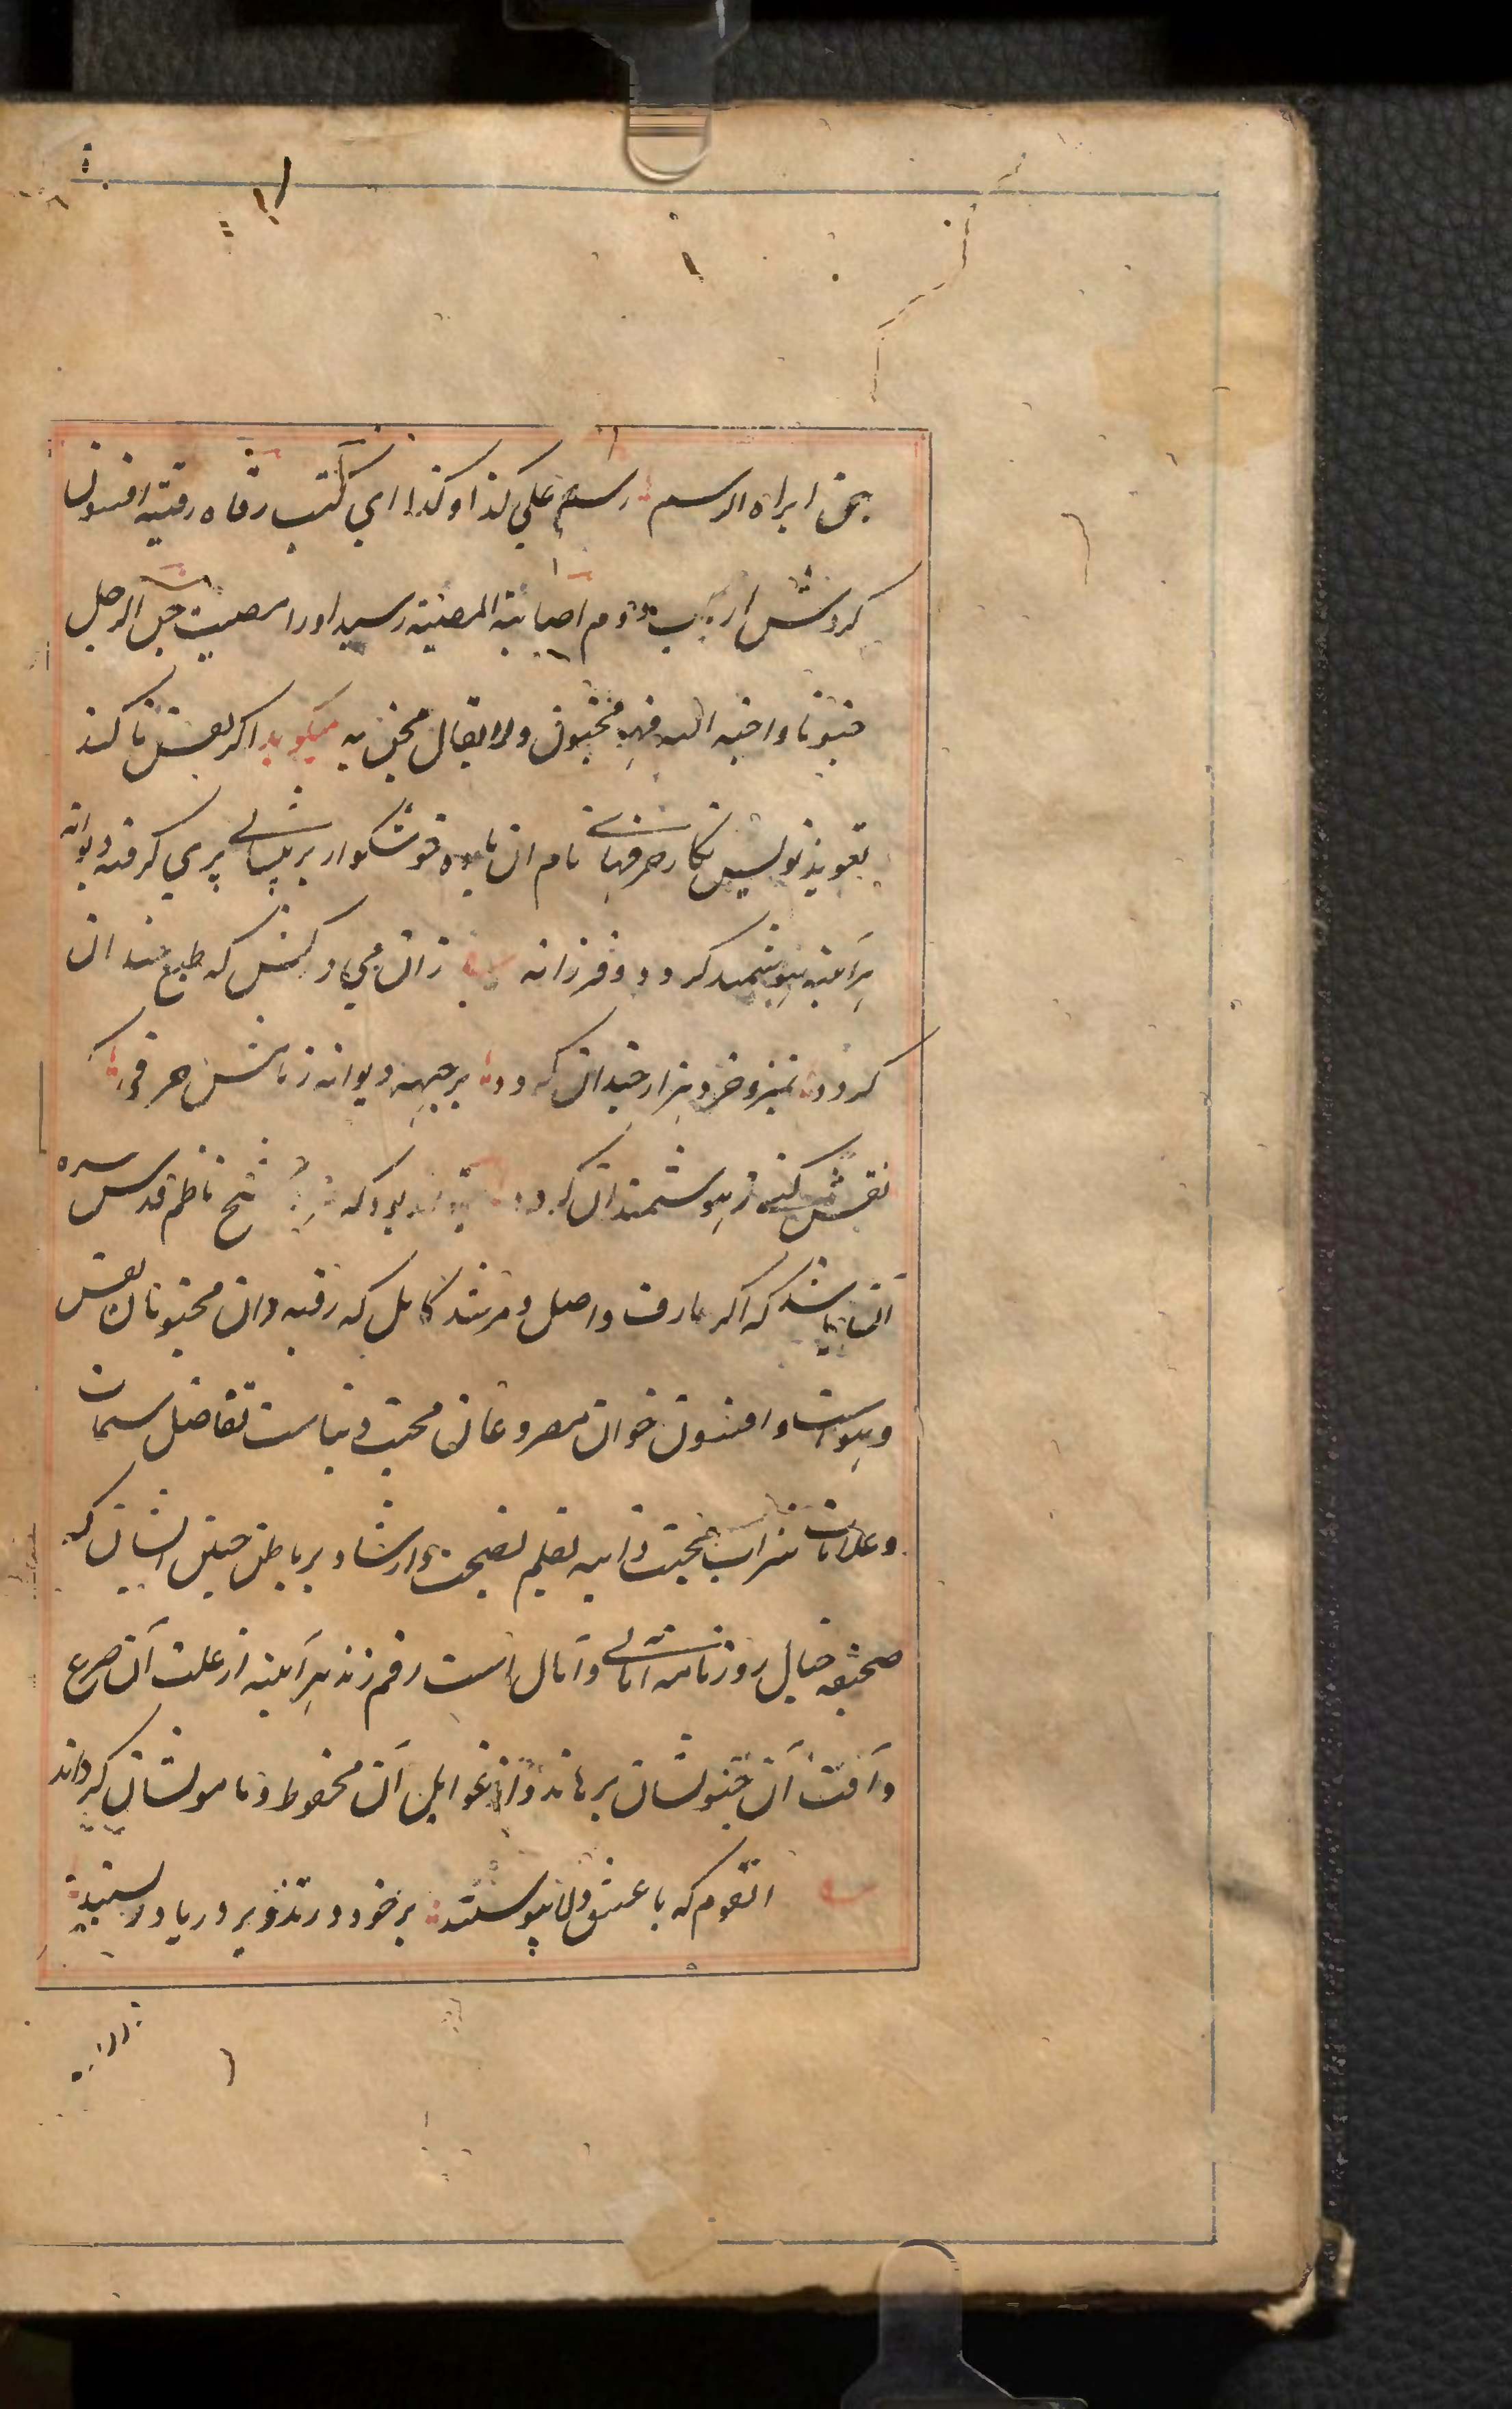 بجن ابراه الرسم رسم علی کذا و کذا ای کتب رقاه رقیة افسون
کردش از باب دوم اصابته المصیبة رسید او را مصیبت جن الرجل
جنونا و اجنه الله فهو مجنون ولا یقال مجن به میگوید اگر نقش تا کند
تعویذ نویس نگار حرفهای نام ان باده خوشگوار بر پیشانی پری گرفته دیوانه
هرآینه هوشمند گردد و فرزانه زان می در کش که طبع خندان
گردد تمیز و خرد هزار چندان گردد بر جبهه دیوانه ز نامش حرفی
نقش کنند ز هوشمندان گردد بود که شیخ ناظم قدس سره
آن باشد که اگر عارف واصل و مرشد کامل که رقیه دان مجنونان نفس
و هواست و افسون خوان مصروعان محبت دنیاست تفاضل سمات
و علامات شراب محبت ذاتیه بقلم نصیحت و ارشاد بر باطن جبلی ایشان که
صحیفه خیال روزنامه امانی و آمال است رقم زند هرآینه از علت آن صرع
و آفت آن جنونشان برهاند و از غوایل آن محفوظ و مامونشان گرداند
انقوم که با عشق ولا پیوستند بر خود در تذویر و ریا در بستند